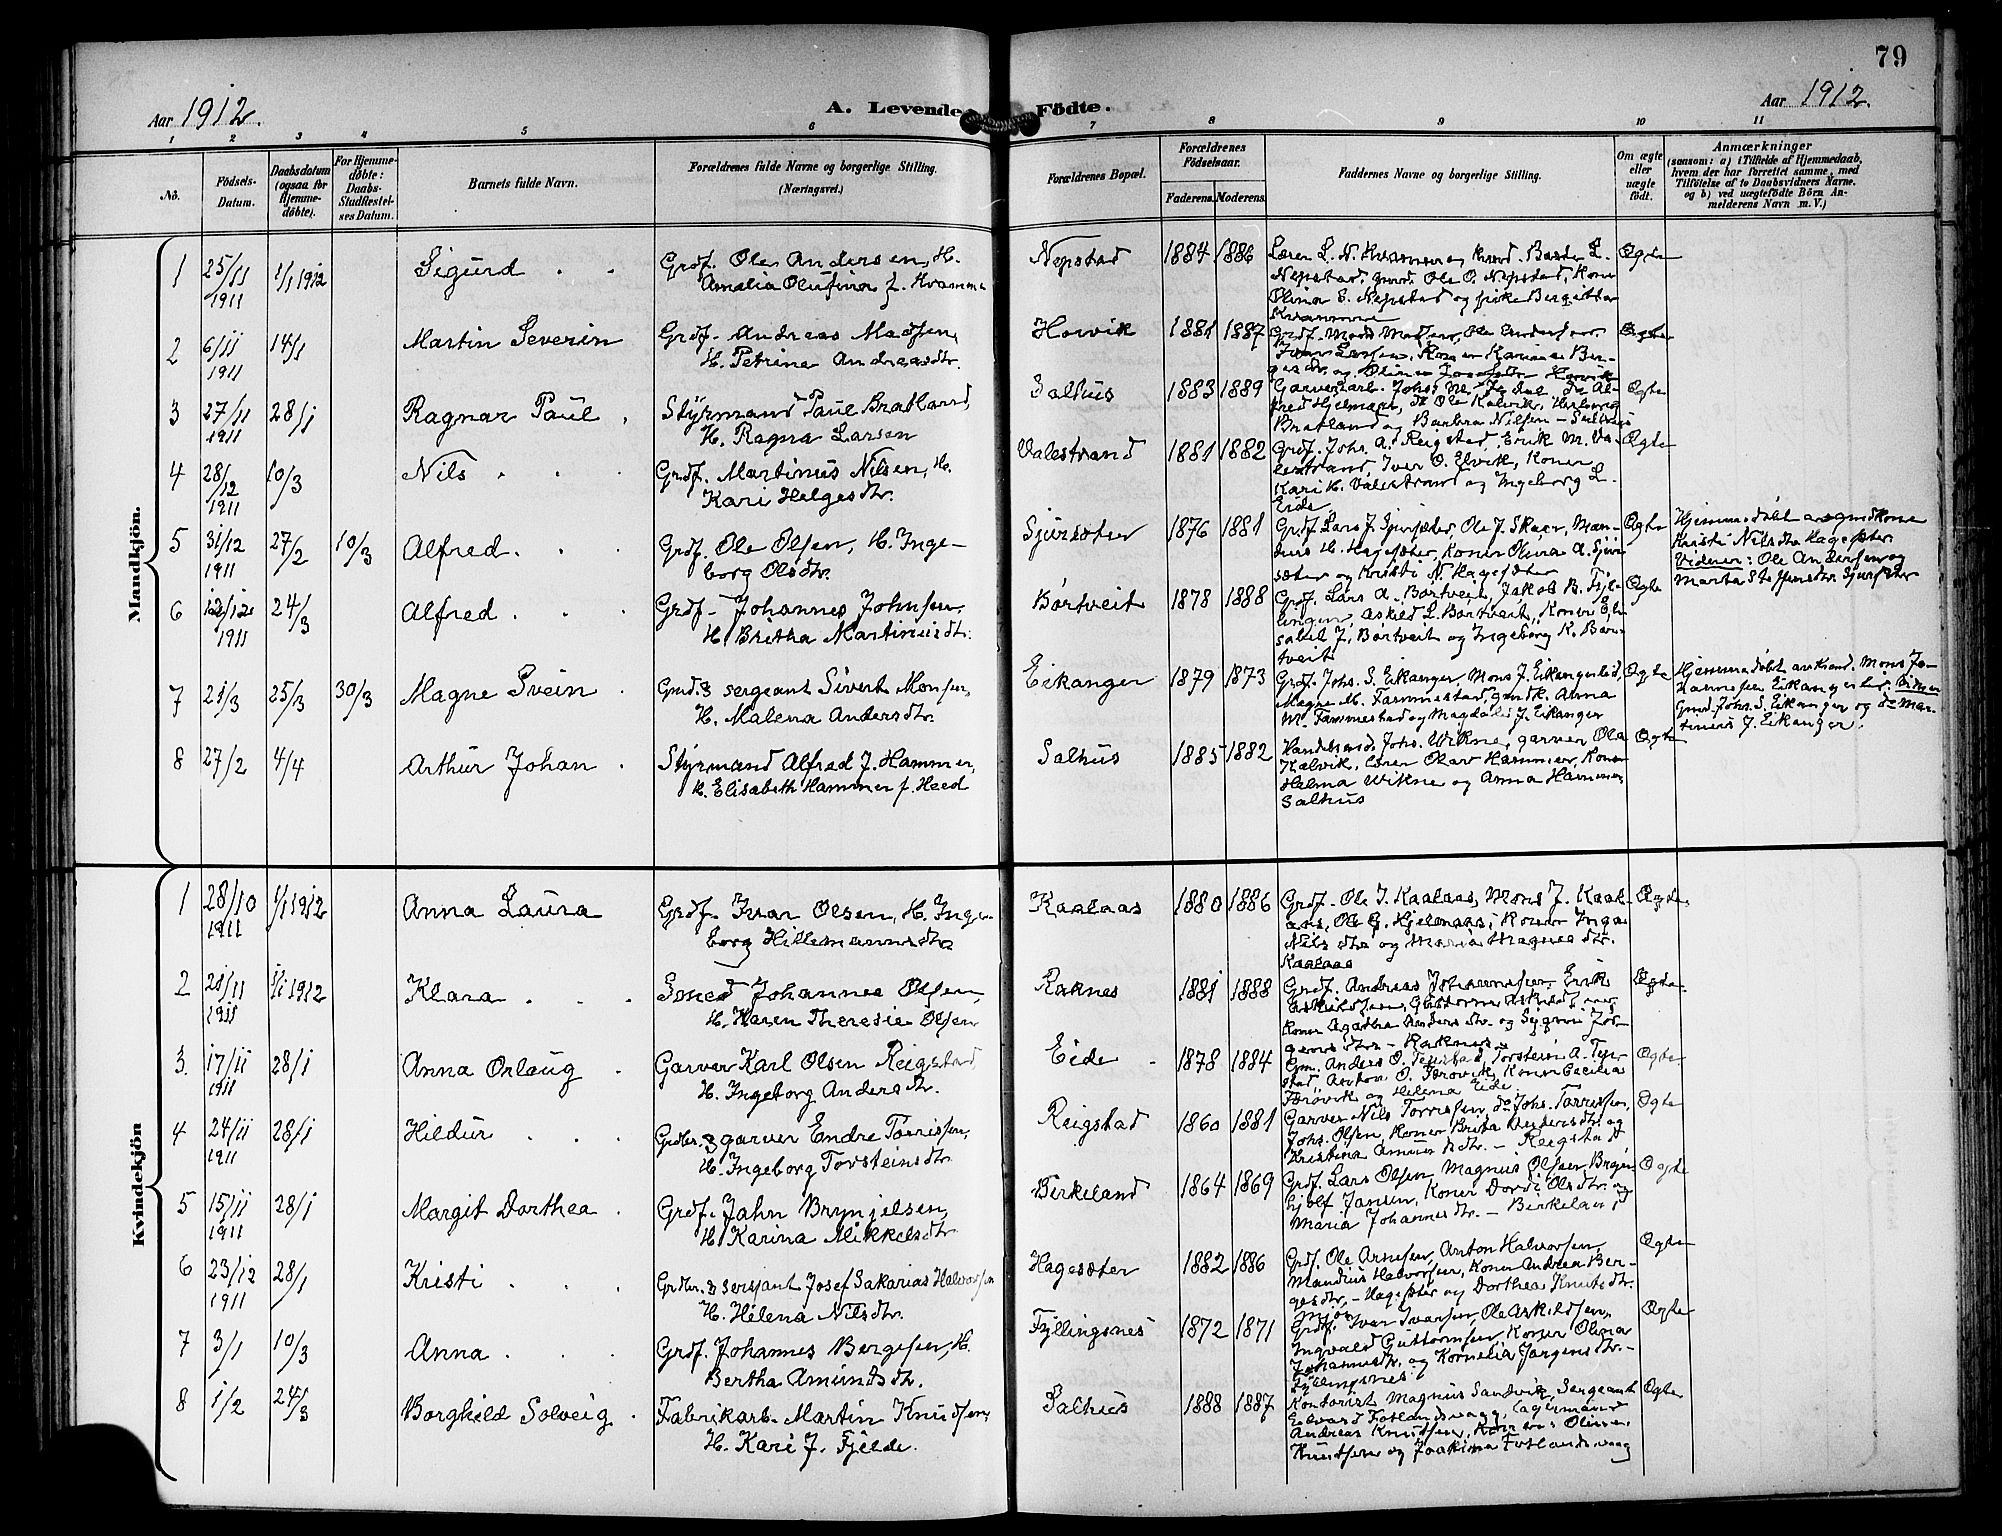 79
Aar 1912.
A. Levende Födte.
Aar 1912.
1 2 3 4 5 6 7 8 9 10 11
No.
Födsels-Datum.
Daabsdatum (ogsaa for Hjemme-döbte).
For Hjemme-döbte: Daabs-Stadfæstel-ses Datum.
Barnets fulde Navn.
Forældrenes fulde Navne og borgerlige Stilling.
(Næringsvei.)
Forældrenes Bopæl.
Forældrenes Födselsaar.
Faderens. Moderens.
Faddernes Navne og borgerlige Stilling.
Om ægte eller uægte födt.
Anmærkninger
(saasom: a) i Tilfælde af Hjemmedaab,
hvem der har forrettet samme, med
Tilföielse af to Daabsvidners Navne.
og b) ved uægtefödte Börn An-
melderens Navn m. V.)
Mandkjön.
1 25/11 1911 1/1 1912 Sigurd
Grdf. Ole Andersen, H.
Amalia Olufina f. Kvamme
Nepstad 1884 1886
Nepstad, Grdf. Ole O. Nepstad, Koner
Olina E. Nepstad og pike Bergitta
Kvamme
Ægte
2 6/11 1911 14/1 Martin Severin
Grdf. Andreas Madsen,
H. Petrine Andreasdtr.
Hovik 1881 1887
Ægte
3 27/11 1911 28/1 Ragnar Paul
Styrmand Paul Bratland,
H. Ragna Larsen
Salhus 1883 1889
Bratland og Barbra Nilsen - Salhus
Ægte
4 28/12 1911 10/3 Nils
Grdf. Martinus Nilsen, H.
Kari Helgesdtr.
Valestrand 1881 1882
Grdf. Johs. A. Reigstad, Erik M. Va-
lestrand, Iver O. Elvik, Koner
Kari H. Valestrand og Ingeborg L.
Eide
Ægte
5 31/12 1911 27/2 10/3 Alfred
Grdf. Ole Olsen, H. Inge-
borg Olsdtr.
Sjursæter 1876 1881
Grdf. Lars J. Sjursæter, Ole J. Skaar, Man-
dius H. Hagesæter, Koner Olina A. Sjur-
sæter og Kristi N. Hagesæter
Ægte
Hjemmedøbt av grdkone
Kristi Nilsdtr Hagesæter
Vidner: Ole Andersen og
Marta Steffensdtr Sjursæter
6 12/12 1911 24/3 Alfred
Grdf. Johannes Johnsen,
H. Britha Martinusdtr.
Børtveit 1878 1888
Grdf. Lars A. Børtveit, Jakob B. Fyl-
lingen, Askild L. Børtveit, Koner Eli-
sabet J. Børtveit og Ingeborg K. Bør-
tveit
Ægte
7 21/3 25/3 30/3 Magne Svein
Grd. & sergeant Sivert Monsen,
H. Malena Andersdtr.
Eikanger 1879 1873
Grdf. Johs. S. Eikanger, Mons J. Eikangerlid,
Magne M. Fammestad, grdk. Anna
M. Fammestad og Magdali J. Eikanger
Ægte
Hjemmedøbt av Mons Jo-
hannesen Eikangerlid. Vidner
Grdf. Johs. S. Eikanger og do Mar-
tinius J. Eikanger.
8 27/2 4/4 Arthur Johan
Styrmand Alfred J. Hammer,
H. Elisabeth Hammer f. Heed
Salhus 1885 1882
Handelsmd. Johs. Wikne, garver Ola
Kalvik, Olav Hammer, Koner
Helma Wikne og Anna Hammer,
Salhus
Ægte
Kvindekjön
1 28/10 1911 1/1 1912 Anna Laura
Grdf. Ivar Olsen, H. Inge-
borg Hillemannsdtr.
Kaalaas 1880 1886
Grdf. Ole I. Kaalaas, Mons J. Kaal-
aas, Ole G. Hjelmaas, Koner Inga
Nilsdtr og Maria Magnedtr.
Kaalaas
Ægte
2 21/11 1911 1/1 1912 Klara
Smed Johannes Olsen,
H. Karen Theresie Olsen
Raknes 1881 1888
Grdf. Andreas Johannesen, Erik
Askildsen, Guttorm
Koner Agatha Andersdtr. og Sygni Jør-
gensdtr. - Raknes
Ægte
3. 17/11 1911 28/1 Anna Orlaug
Garver Karl Olsen Reigstad
H. Ingeborg Andersdtr.
Eide 1878 1884
Gm. Anders O. Torstein A.
Anton O. Førovik, Koner Cecilia
Førovik og Helena Eide
Ægte
4 24/11 1911 28/1 Hildur
Grdbr. & garver Endre Torrissen,
H. Ingeborg Torsteinsdtr.
Reigstad 1860 1881
Garver Nils Torrissen, do Johs. Torrissen,
Johs. Olsen, Koner Brita Andersdtr. og
Kristina Amundsdtr. - Reigstad
Ægte
5 15/11 1911 28/1 Margit Dorthea
Grdf. Jahn Brynjelsen,
H. Karina Mikkelsdtr.
Birkeland 1864 1869
Grdf. Lars Olsen, Magnus Olsen,
Jansen, Koner Dordi Olsdtr. og
Maria Johannesdtr. - Birkeland
Ægte
6 23/12 1911 28/1 Kristi
Grdbr. & sersjant Josef Sakarias Halvorsen
H. Helena Nilsdtr.
Hagesæter 1882 1886
Grdf. Ole Arnesen, Anton Halvorsen,
Mandius Halvorsen, Koner Andrea Ber-
gesdtr. - Hagesæter og Dorthea Knutsdtr.
Mjøs
Ægte
7 3/1 10/3 Anna
Grdf. Johannes Bergesen, H.
Bertha Amundsdtr.
Fyllingsnes 1872 1871
Grdf. Iver Ivarsen, Ole Askildsen,
Ingvald Guttormsen, Koner Olina
Johannesdtr. og Kornelia Jørgensdtr. -
Fyllingsnes
Ægte
8 1/2 24/3 Borghild Solveig
Fabrikarb. Martin Knudsen,
H. Kari J. Fjelde.
Salhus 1888 1887
Kontorist Magnus Sandvik, Sergeant
Edvard Fotlandsvaag, Lagermand
Andreas Knudsen, Koner Oline
Knudsen og Joakima Fotlandsvaag
Ægte